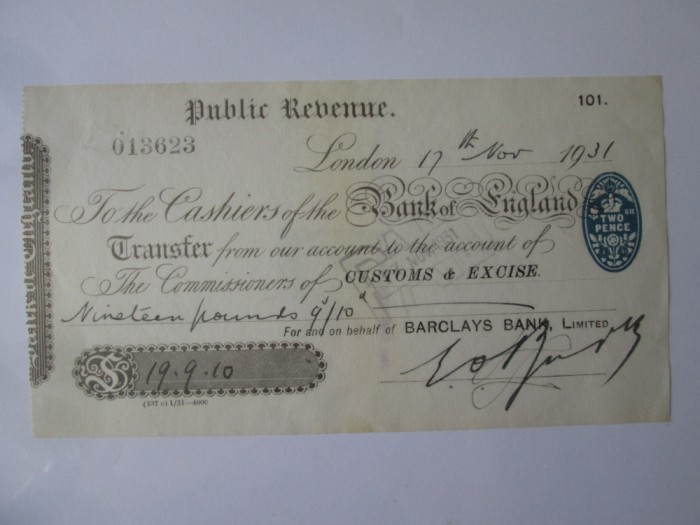 Public Revenue.
101.
013623
London 17th Nov 1931
To the Cashiers of the Bank of England
TWO PENCE
Transfer from our account to the account of
The Commissioners of CUSTOMS & EXCISE.
Nineteen pounds 9/10d
For and on behalf of BARCLAYS BANK, LIMITED
£ 19.9.10
(337 c) 1/31—4000